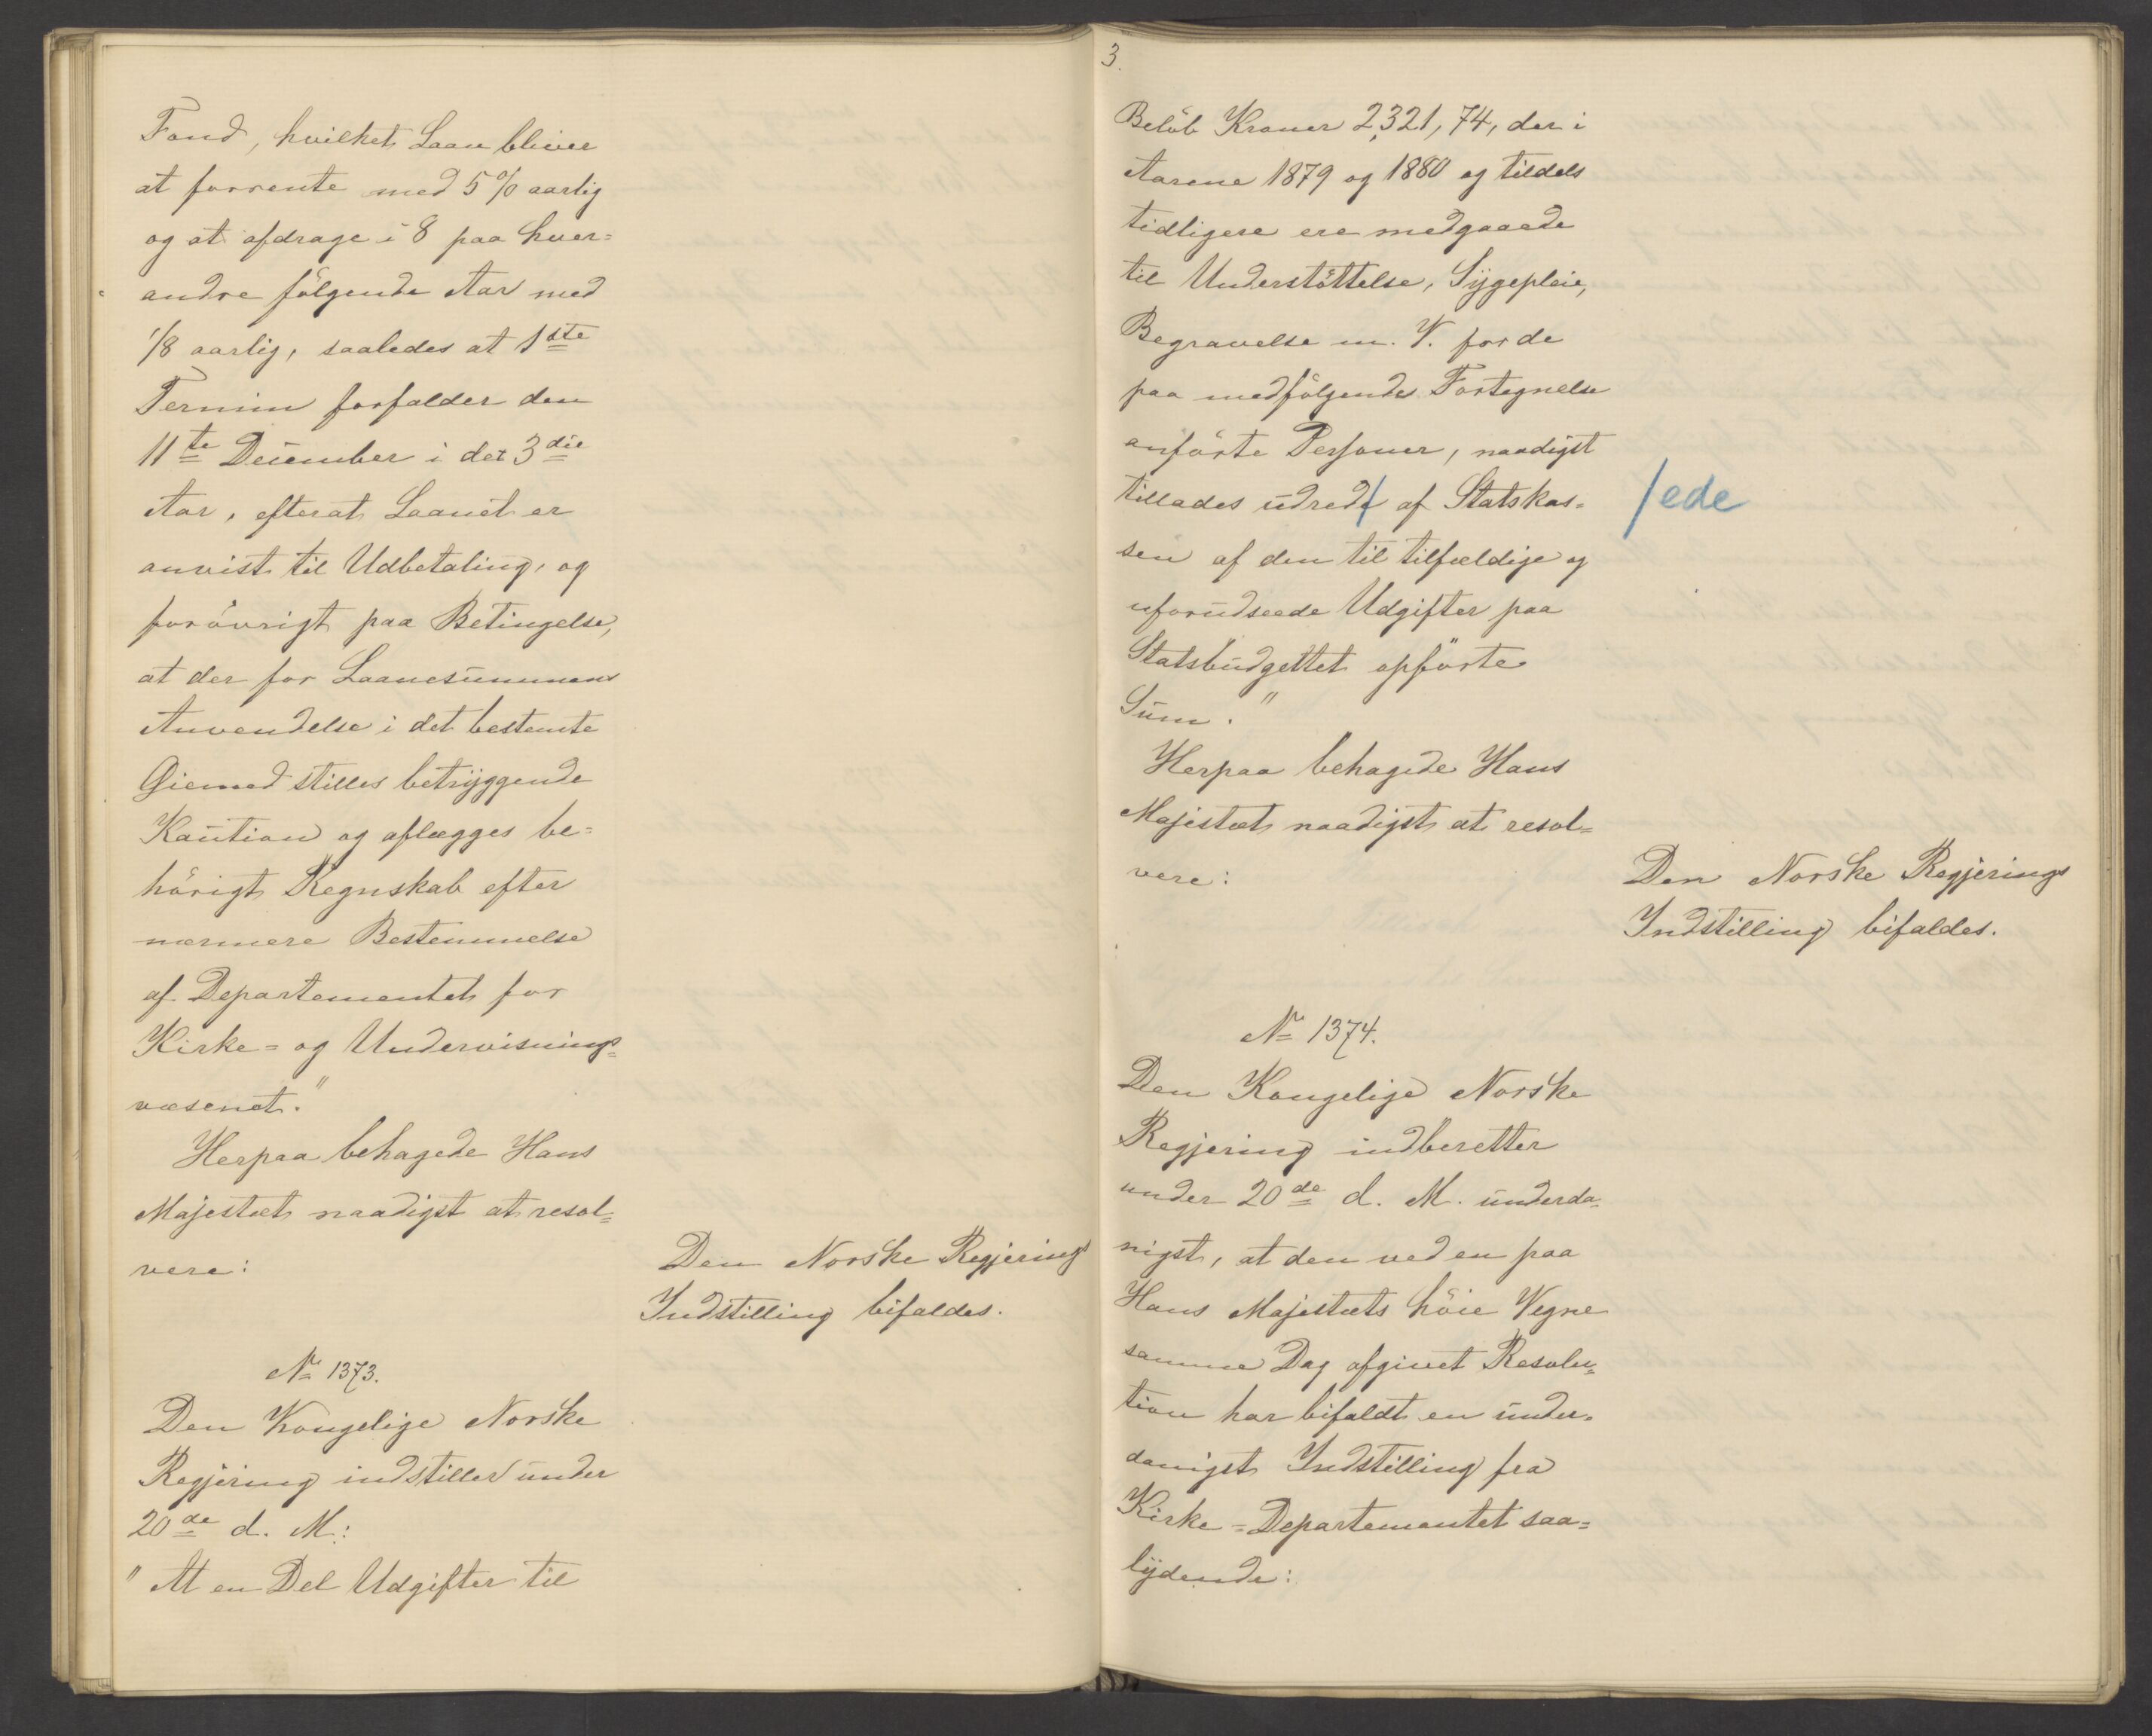 Fond, hvilket Laan bliver
at forrente med 5 % aarlig
og at afdrage i 8 paa hver=
andre följende Aar med
1/8 aarlig, saaledes at 1ste
Termin forfalder den
11te December i det 3die
Aar, efterat Laanet er
anvist til Udbetaling, og
forövrigt paa Betingelse,
at der for Laanesummens
Anvendelse i det bestemte
Öiemed stilles betryggende
Kaution og aflægges be=
hörigt Regnskab efter
nærmere Bestemmelse
af Departementet for
Kirke= og Undervisnings=
væsenet."
Herpaa behagede Hans
Majestæt naadigst at resol=
vere:
Den Norske Regjerings
Indstilling bifaldes.
No 1373.
Den Kongelige Norske
Regjering indstiller under
20de d. M.:
"At en Del Udgifter til
3.
Belöb Kroner 2,321,74, der i
Aarene 1879 og 1880 og tildels
tidligere ere medgaaede
til Understöttelse, Sygepleie,
Begravelse m. V. for de
paa medfölgende Fortegnelse
anförte Personer, naadigst
tillades udredt af Statskas=
/ede
sen af den til tilfældige og
uforudseede Udgifter paa
Statsbudgettet opförte
Sum."
Herpaa behagede Hans
Majestæt naadigst at resol=
vere:
Den Norske Regjerings
Indstilling bifaldes.
No 1374.
Den Kongelige Norske
Regjering indberetter
under 20de d. M. underda=
nigst, at den ved en paa
Hans Majestæts höie Vegne
samme Dag afgivet Resolu=
tion har bifaldt en under=
danigst Indstilling fra
Kirke=Departementet saa=
lydende: